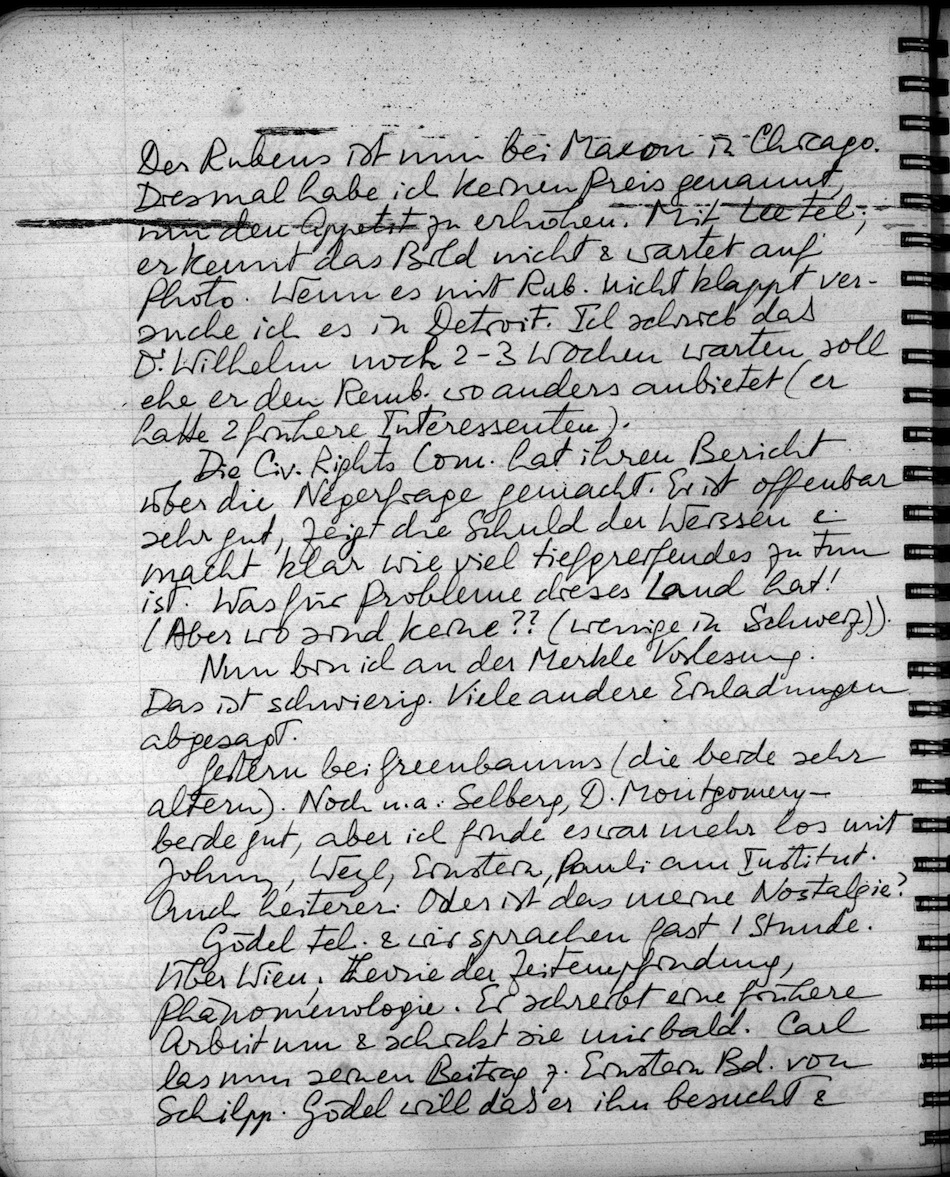 Der Rubens ist nun bei Maxon in Chicago.
Diesmal habe ich keinen Preis genannt,
um den Appetit zu erhöhen. Mit Lee tel.;
erkennt das Bild nicht & wartet auf
Photo. Wenn es mit Rub. nicht klappt ver-
suche ich es in Detroit. Ich schrieb das
Dr. Wilhelm noch 2-3 Wochen warten soll
ehe er den Remb. wo anders anbietet (er
hatte 2 frühere Interessenten).
Die Civ. Rights Com. hat ihren Bericht
über die Negerfrage gemacht. Er ist offenbar
sehr gut, zeigt die Schuld der Weissen &
macht klar wie viel tiefgreifendes zu tun
ist. Was für Probleme dieses Land hat!
(Aber wo sind keine?? (wenige in Schweiz)).
Nun bin ich an der Merkle Vorlesung.
Das ist schwierig. Viele andere Einladungen
abgesagt.
Gestern bei Greenbaums (die beide sehr
altern). Noch u.a. Selberg, D. Montgomery –
beide gut, aber ich finde es war mehr los mit
Johnny, Weyl, Einstein, Pauli am Institut.
Auch heiterer. Oder ist das meine Nostalgie?
Gödel tel. & wir sprachen fast 1 Stunde.
Über Wien, Theorie der Zeitempfindung,
Phänomenologie. Er schreibt eine frühere
Arbeit um & schickt sie mir bald. Carl
las nun seinen Beitrag z. Einstein Bd. von
Schilpp. Gödel will das er ihn besucht &